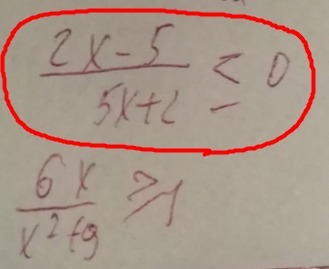 (2x-5)/(5x+2) ≤ 0
6x/(x²+9) ≥ 1